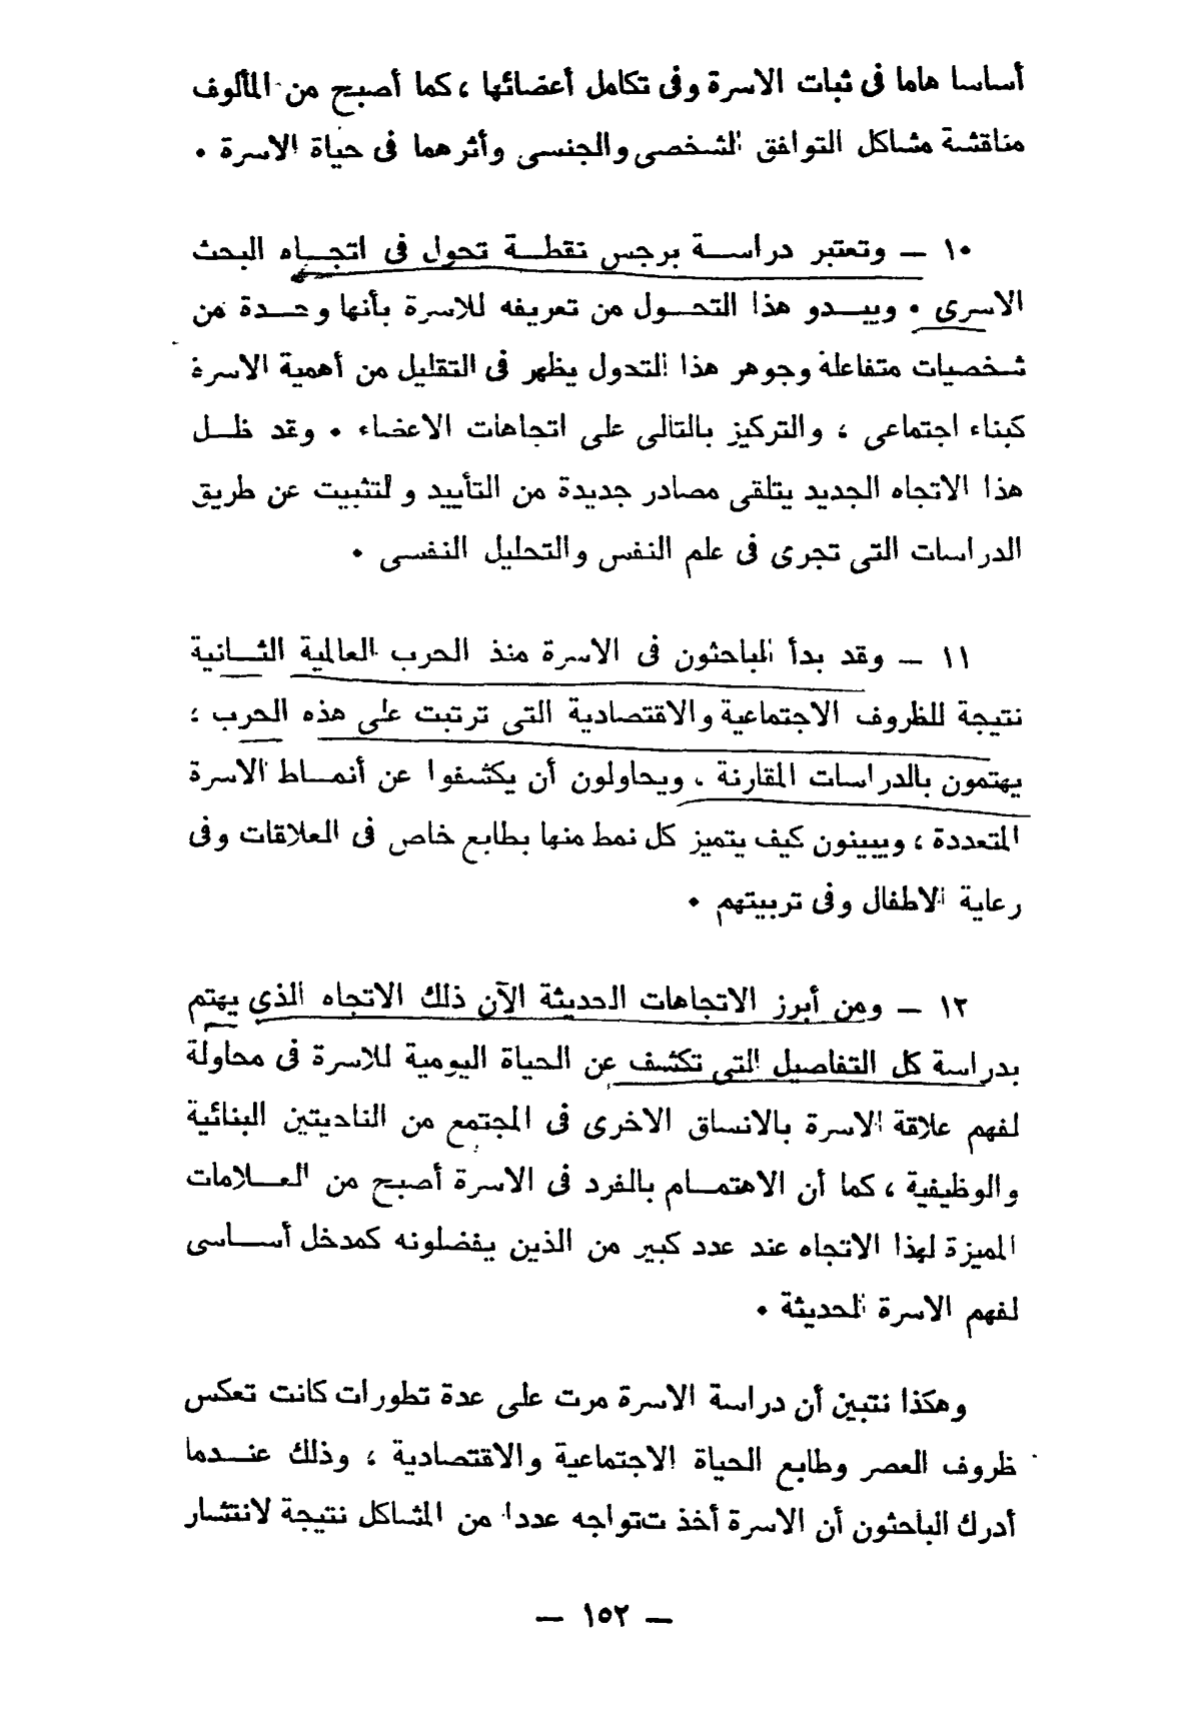 أساسا هاما فى ثبات الاسرة وفى تكامل أعضائها ، كما أصبح من المألوف
مناقشة مشاكل التوافق الشخصى والجنسى وأثرهما فى حياة الاسرة ٠
١٠ — وتعتبر دراسة برجس نقطة تحول فى اتجاه البحث
الاسرى ٠ ويبدو هذا التحول من تعريفه للاسرة بأنها وحدة من
شخصيات متفاعلة وجوهر هذا التحول يظهر فى التقليل من أهمية الاسرة
كبناء اجتماعى ، والتركيز بالتالى على اتجاهات الاعضاء ٠ وقد ظل
هذا الاتجاه الجديد يتلقى مصادر جديدة من التأييد و لتثبيت عن طريق
الدراسات التى تجرى فى علم النفس والتحليل النفسى ٠
١١ — وقد بدأ الباحثون فى الاسرة منذ الحرب العالمية الثانية
نتيجة للظروف الاجتماعية والاقتصادية التى ترتبت على هذه الحرب ؛
يهتمون بالدراسات المقارنة . ويحاولون أن يكشفوا عن أنماط الاسرة
المتعددة ، ويبينون كيف يتميز كل نمط منها بطابع خاص فى العلاقات وفى
رعاية الاطفال وفى تربيتهم ٠
١٢ — ومن أبرز الاتجاهات الحديثة الآن ذلك الاتجاه الذي يهتم
بدراسة كل التفاصيل التى تكشف عن الحياة اليومية للاسرة فى محاولة
لفهم علاقة الاسرة بالانساق الاخرى فى المجتمع من الناحيتين البنائية
والوظيفية ، كما أن الاهتمام بالفرد فى الاسرة أصبح من العلامات
المميزة لهذا الاتجاه عند عدد كبير من الذين يفضلونه كمدخل أساسى
لفهم الاسرة الحديثة ٠
وهكذا نتبين أن دراسة الاسرة مرت على عدة تطورات كانت تعكس
ظروف العصر وطابع الحياة الاجتماعية والاقتصادية ، وذلك عندما
أدرك الباحثون أن الاسرة أخذ تتواجه عددا من المشاكل نتيجة لانتشار
— ١٥٢ —